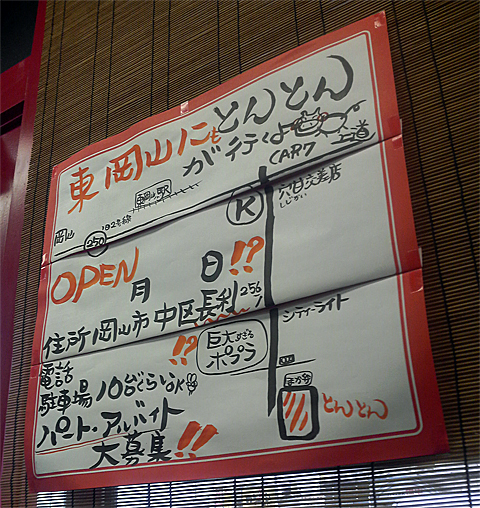 東岡山にもとんとん
が行くよ
CAR7
東岡山駅
岡山
182号線
250
K
しじかい
OPEN 月 日!!?
住所岡山市中区長利256
!!?
シティーライト
電話
巨大めざる
ポプラ
駐車場10台ぐらいOK
とんとん
パート・アルバイト
大募集!!